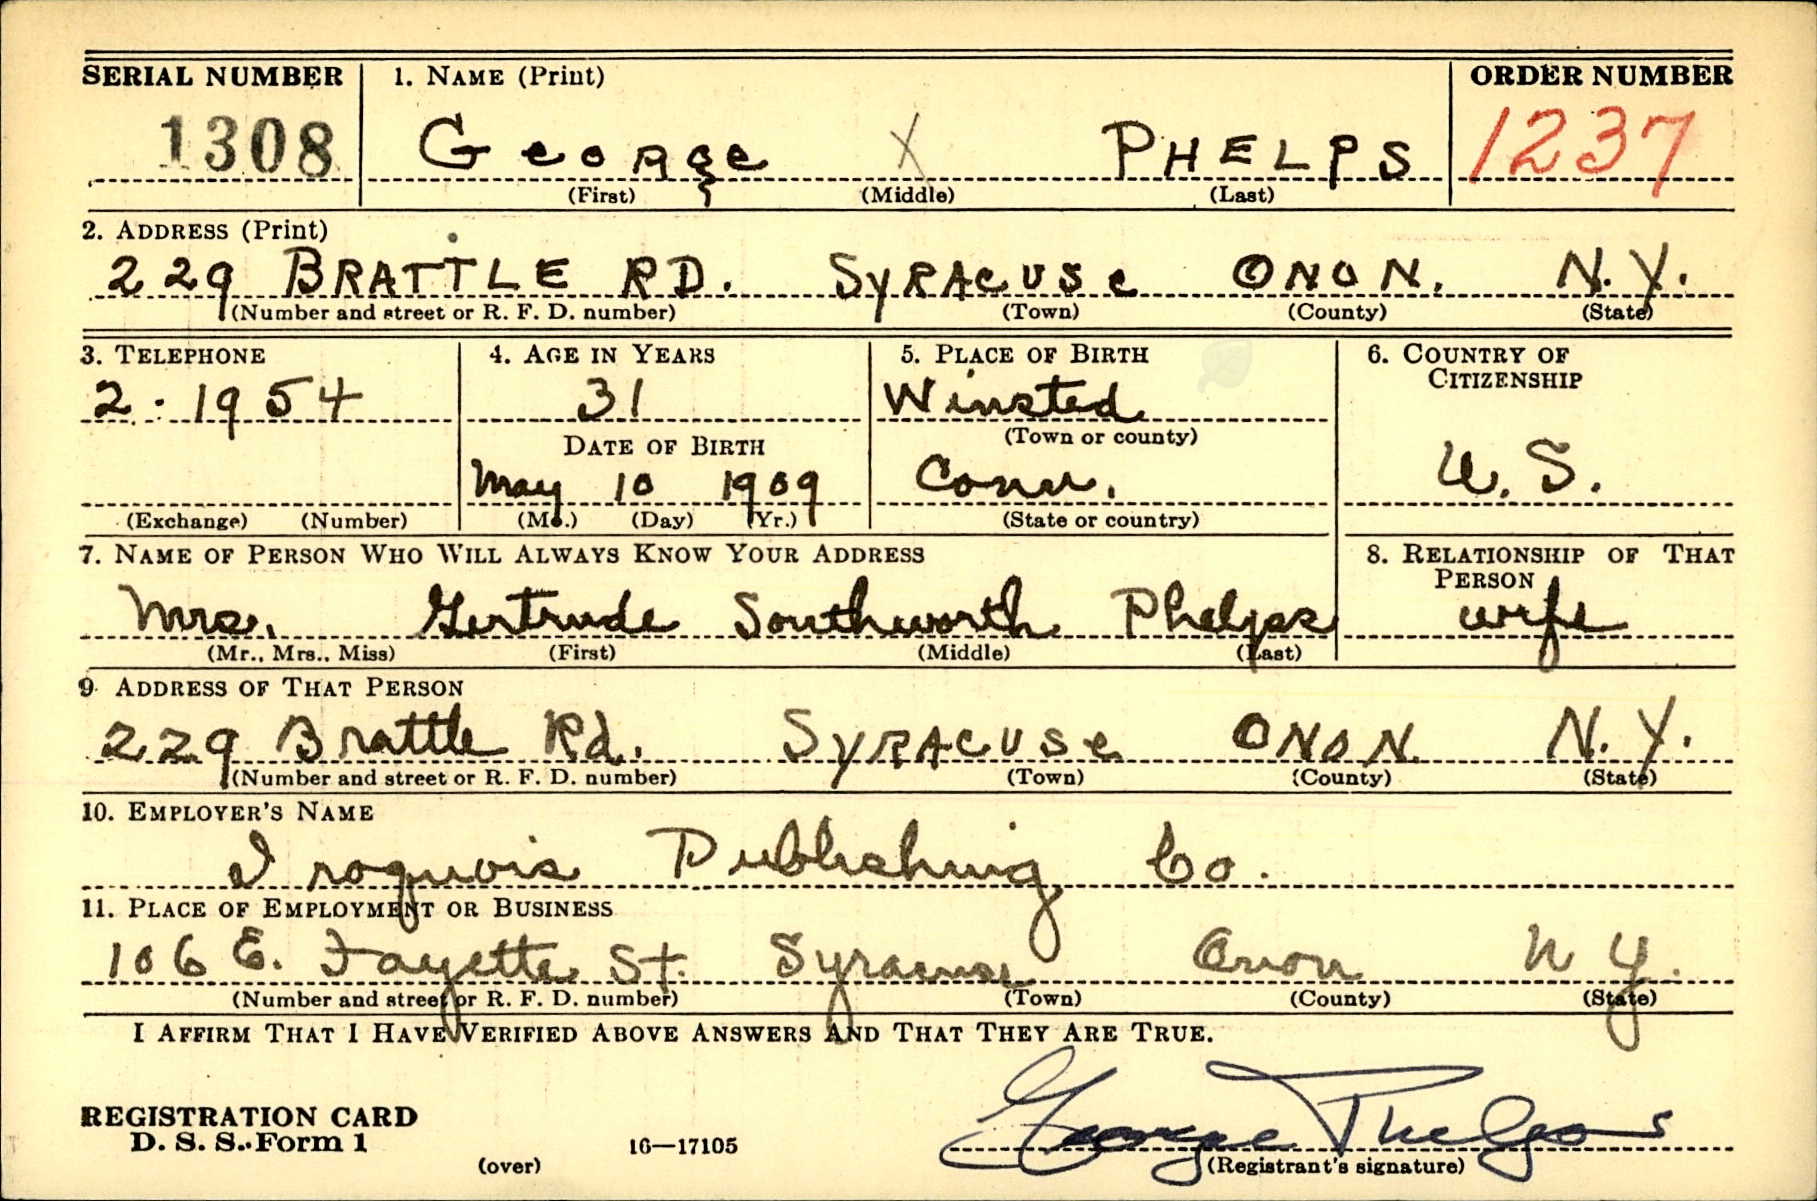 SERIAL NUMBER 1. NAME (Print) ORDER NUMBER
1308 George X PHELPS 1237
(First) (Middle) (Last)
2. ADDRESS (Print)
229 BRATTLE RD. SYRACUSe ONON. N.Y.
(Number and street or R. F. D. number) (Town) (County) (State)
3. TELEPHONE 4. AGE IN YEARS 5. PLACE OF BIRTH 6. COUNTRY OF CITIZENSHIP
2-1954 31 Winsted
DATE OF BIRTH (Town or county)
May 10 1909 Conn. U. S.
(Exchange) (Number) (Mo.) (Day) (Yr.) (State or country)
7. NAME OF PERSON WHO WILL ALWAYS KNOW YOUR ADDRESS 8. RELATIONSHIP OF THAT PERSON
Mrs. Gertrude Southworth Phelps wife
(Mr., Mrs., Miss) (First) (Middle) (Last)
9. ADDRESS OF THAT PERSON
229 Brattle Rd. SYRACUSe ONON. N.Y.
(Number and street or R. F. D. number) (Town) (County) (State)
10. EMPLOYER'S NAME
Iroquois Publishing Co.
11. PLACE OF EMPLOYMENT OR BUSINESS
106 E. Fayette St. Syracuse Onon N Y.
(Number and street or R. F. D. number) (Town) (County) (State)
I AFFIRM THAT I HAVE VERIFIED ABOVE ANSWERS AND THAT THEY ARE TRUE.
George Phelps
REGISTRATION CARD
D. S. S. Form 1 16—17105
(over) (Registrant's signature)